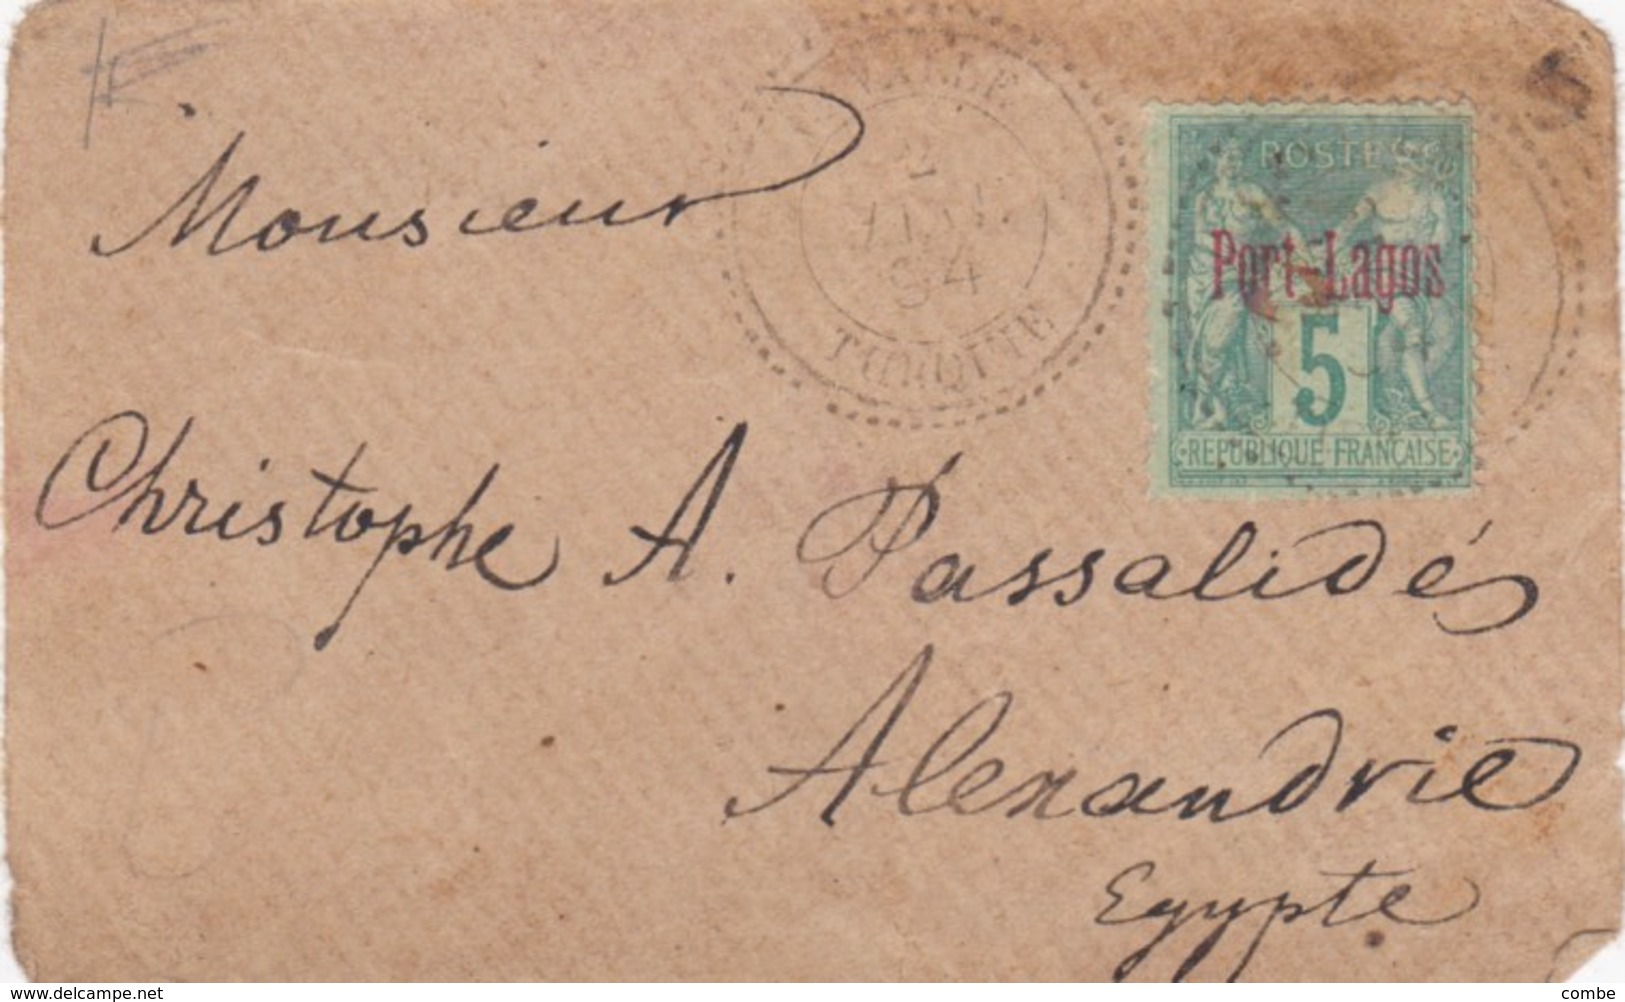 Monsieur
Christophe A. Passalidés
Alexandrie
Egypte
2
JANV.
94
TURQUIE
POSTES
Port-Lagos
5
REPUBLIQUE FRANÇAISE
www.delcampe.net
combe